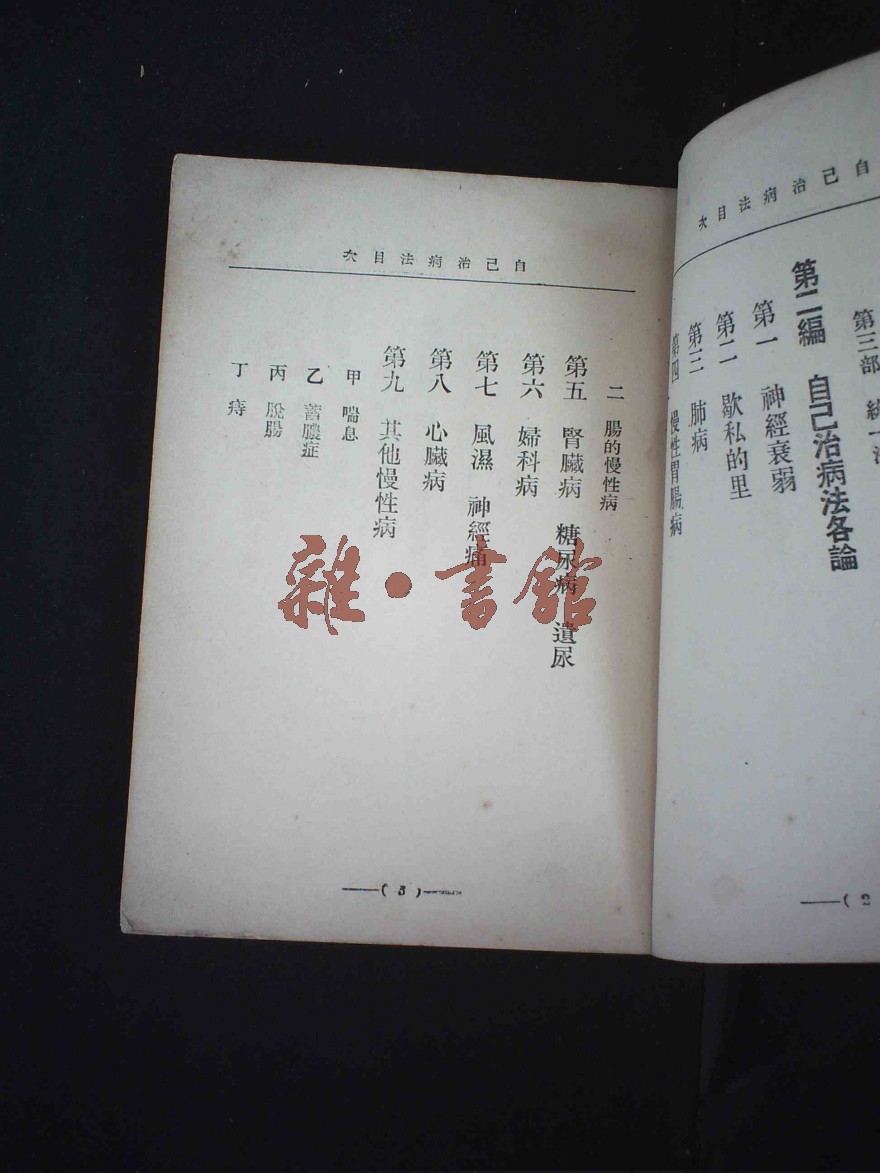 自己治病法目次
第三部 統一法
第二編 自己治病法各論
第一 神經衰弱
第二 歇私的里
第三 肺病
第四 慢性胃腸病
(2
自己治病法目次
二 腸的慢性病
第五 腎臟病 糖尿病 遺尿
第六 婦科病
第七 風濕 神經痛
第八 心臟病
第九 其他慢性病
甲 喘息
乙 蓄膿症
丙 脫腸
丁 痔
(3)
雜·書館